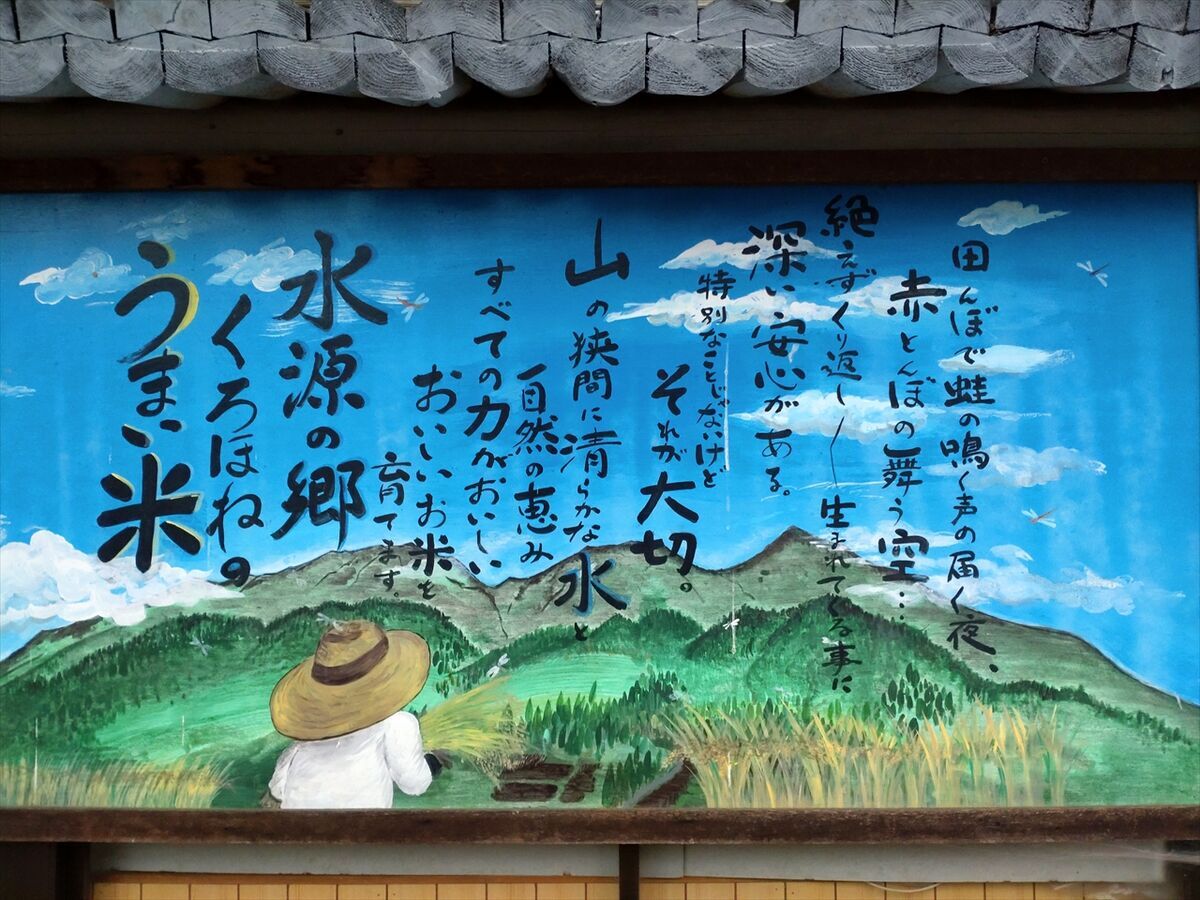 田んぼで蛙の鳴く声の届く夜、
赤とんぼの舞う空…
絶えずくり返し／生まれてくる事に
深い安心がある。
特別なことじゃないけど
それが大切。
山の狭間に清らかな水と
自然の恵み
すべての力がおいしい
おいしいお米を
育てます。
水源の郷
くろほね。の
うまい米